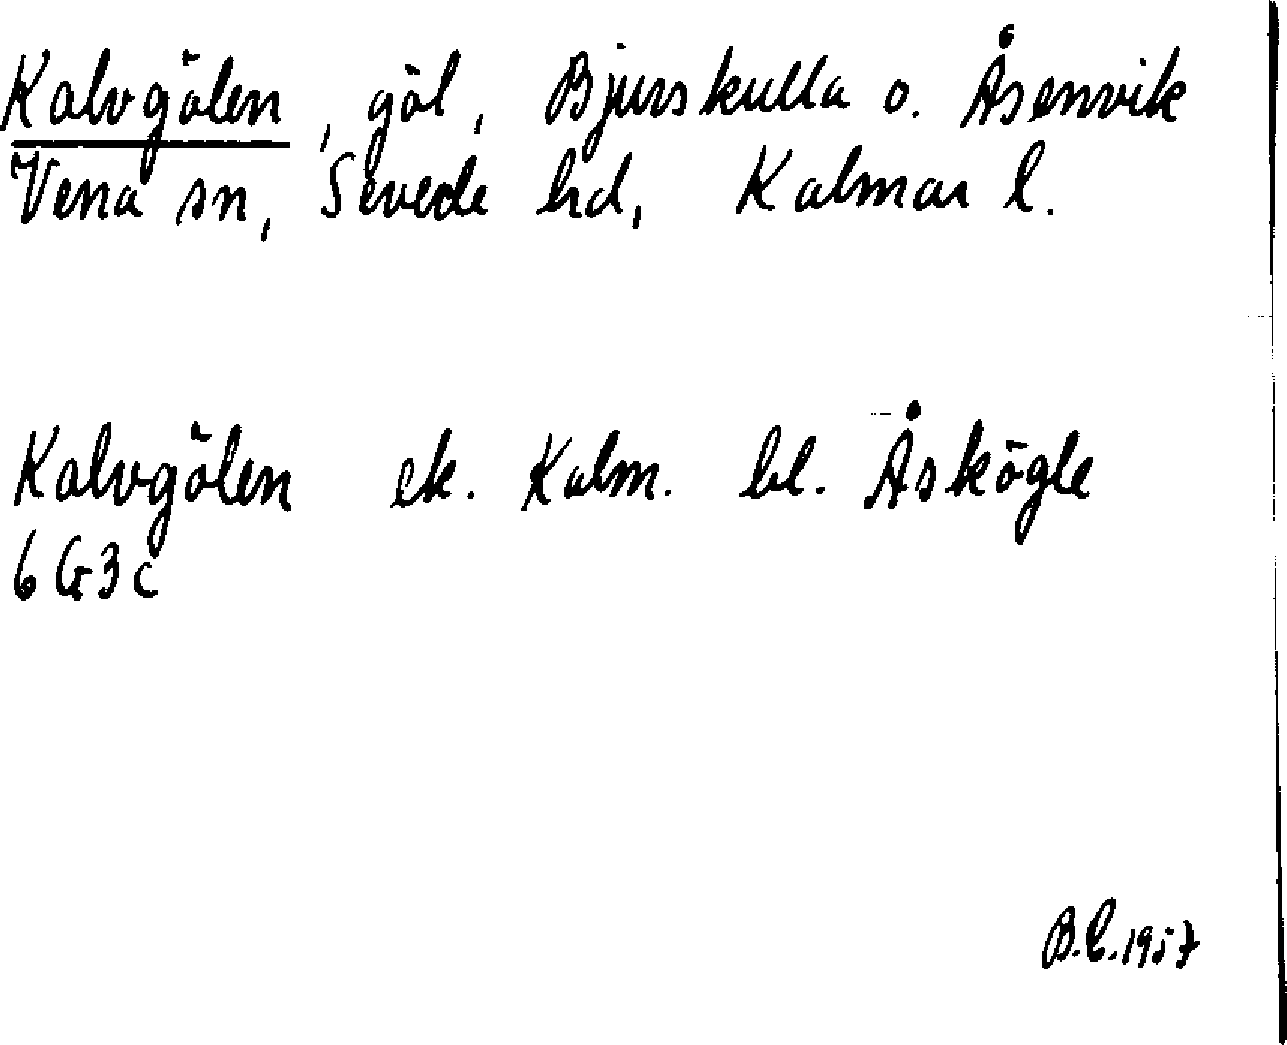 Kalvgölen, göl, Bjurskulla o. Åsenvik
Vena sn, Sevede hd, Kalmar l.
Kalvgölen ek. Kalm. bl. Åskögle
6G3c
B.L.1957